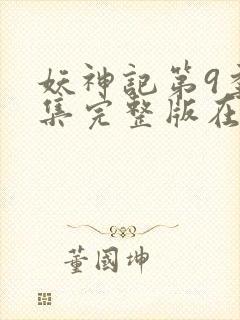 妖神記第9
集完整版在
董國坤